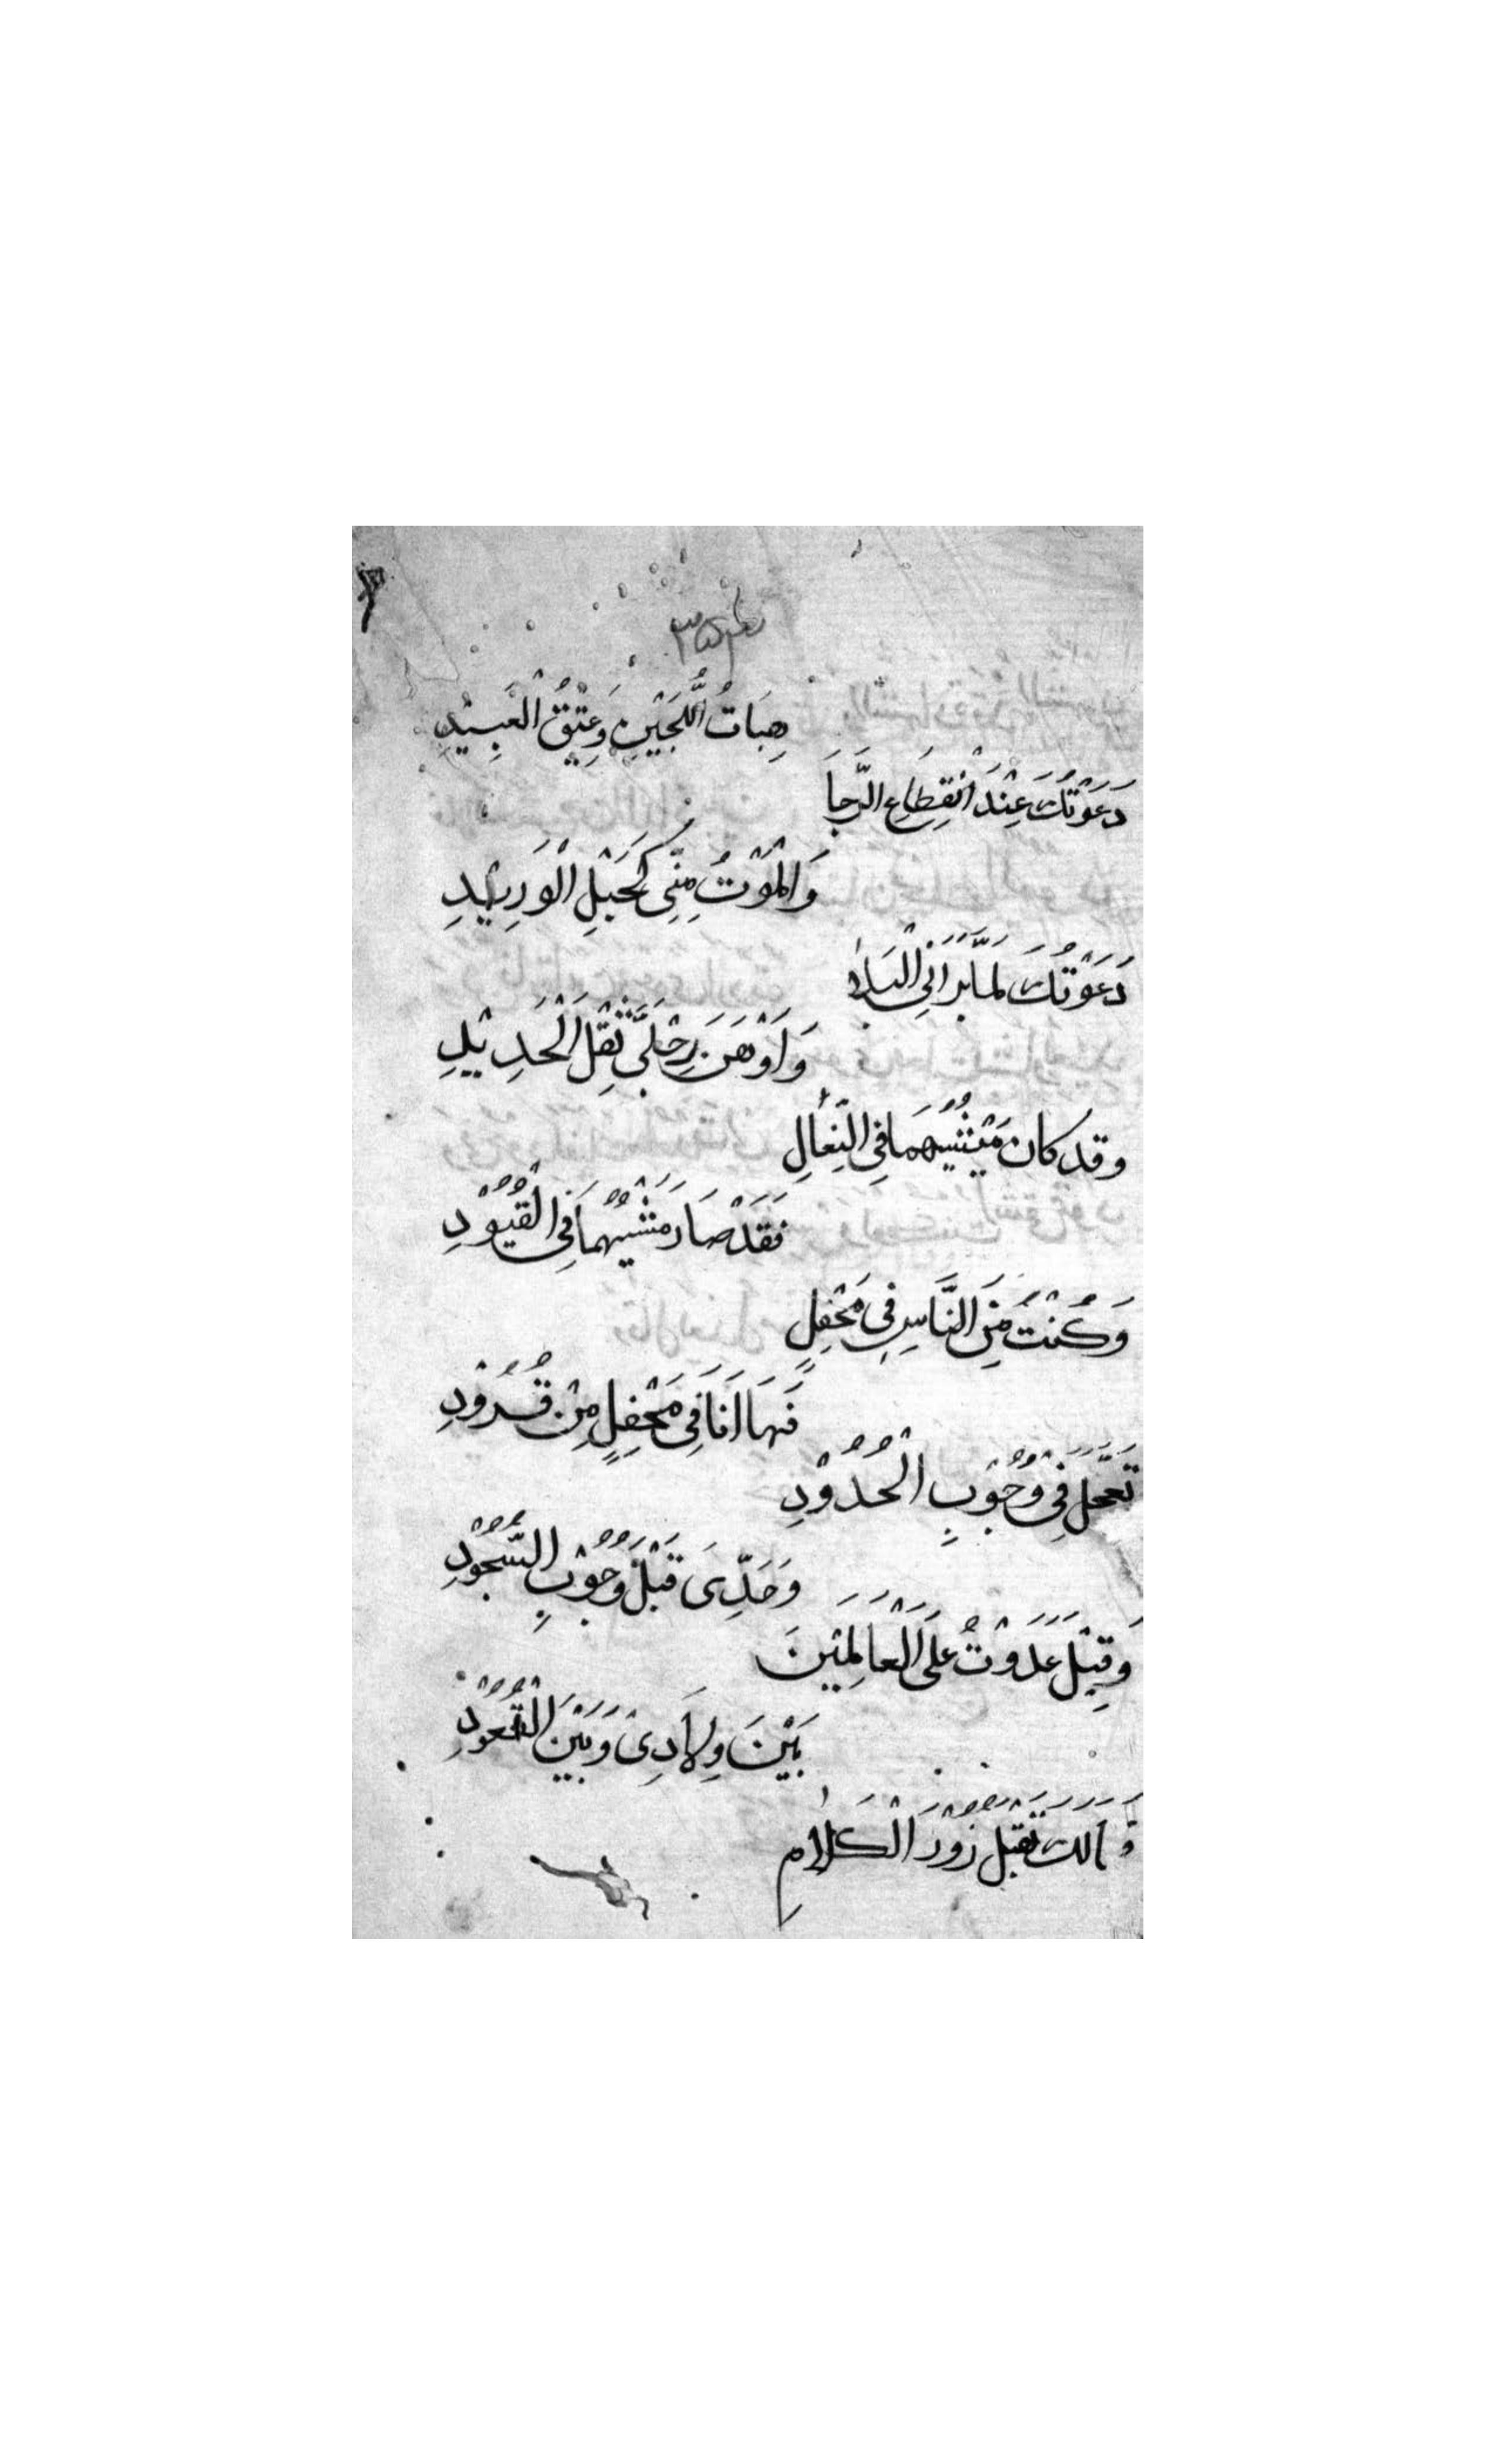 هِبَاتُ اللُّجَيْنِ وَعِتْقُ الْعَبِيْدِ
دَعَوْتُكَ عِنْدَ انْقِطَاعِ الرَّجَا
وَالْمَوْتُ مِنِّي كَحَبْلِ الْوَرِيْدِ
دَعَوْتُكَ لَمَّا بَرَانِي الْبَلَا
وَاَوْهَنَ رِجْلَيَّ ثِقْلُ الْحَدِيْدِ
وقد كان مَشْيُهُمَا فِي النِّعَالِ
فَقَدْ صَارَ مَشْيُهُمَا فِي الْقُيُوْدِ
وَكُنْتُ مِنَ النَّاسِ فِي مَحْفِلٍ
فَهَا اَنَا فِي مَحْفِلٍ مِنْ قُرُوْدِ
تَعَجَّلَ فِيَّ وُجُوْبِ الْحُدُوْدِ
وَحَدِّىَ قَبْلَ وُجُوْبِ السُّجُوْدِ
وَقِيْلَ عَدَوْتُ عَلَى الْعَالَمِيْنَ
بَيْنَ وِلَادِىْ وَبَيْنَ الْقُعُوْدِ
مَالَكَ تَقْبَلُ زُوْرَ الْكَلَامِ